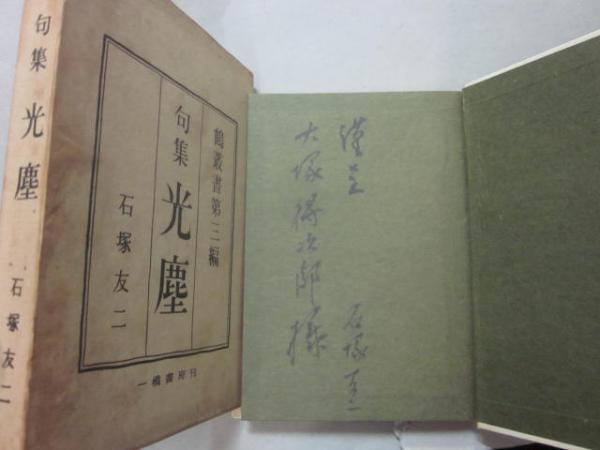 句集 光塵 石塚友二
鶴叢書第三編
句集 光塵
石塚友二
一橋書房刊
謹呈
大塚得次郎様
石塚友二